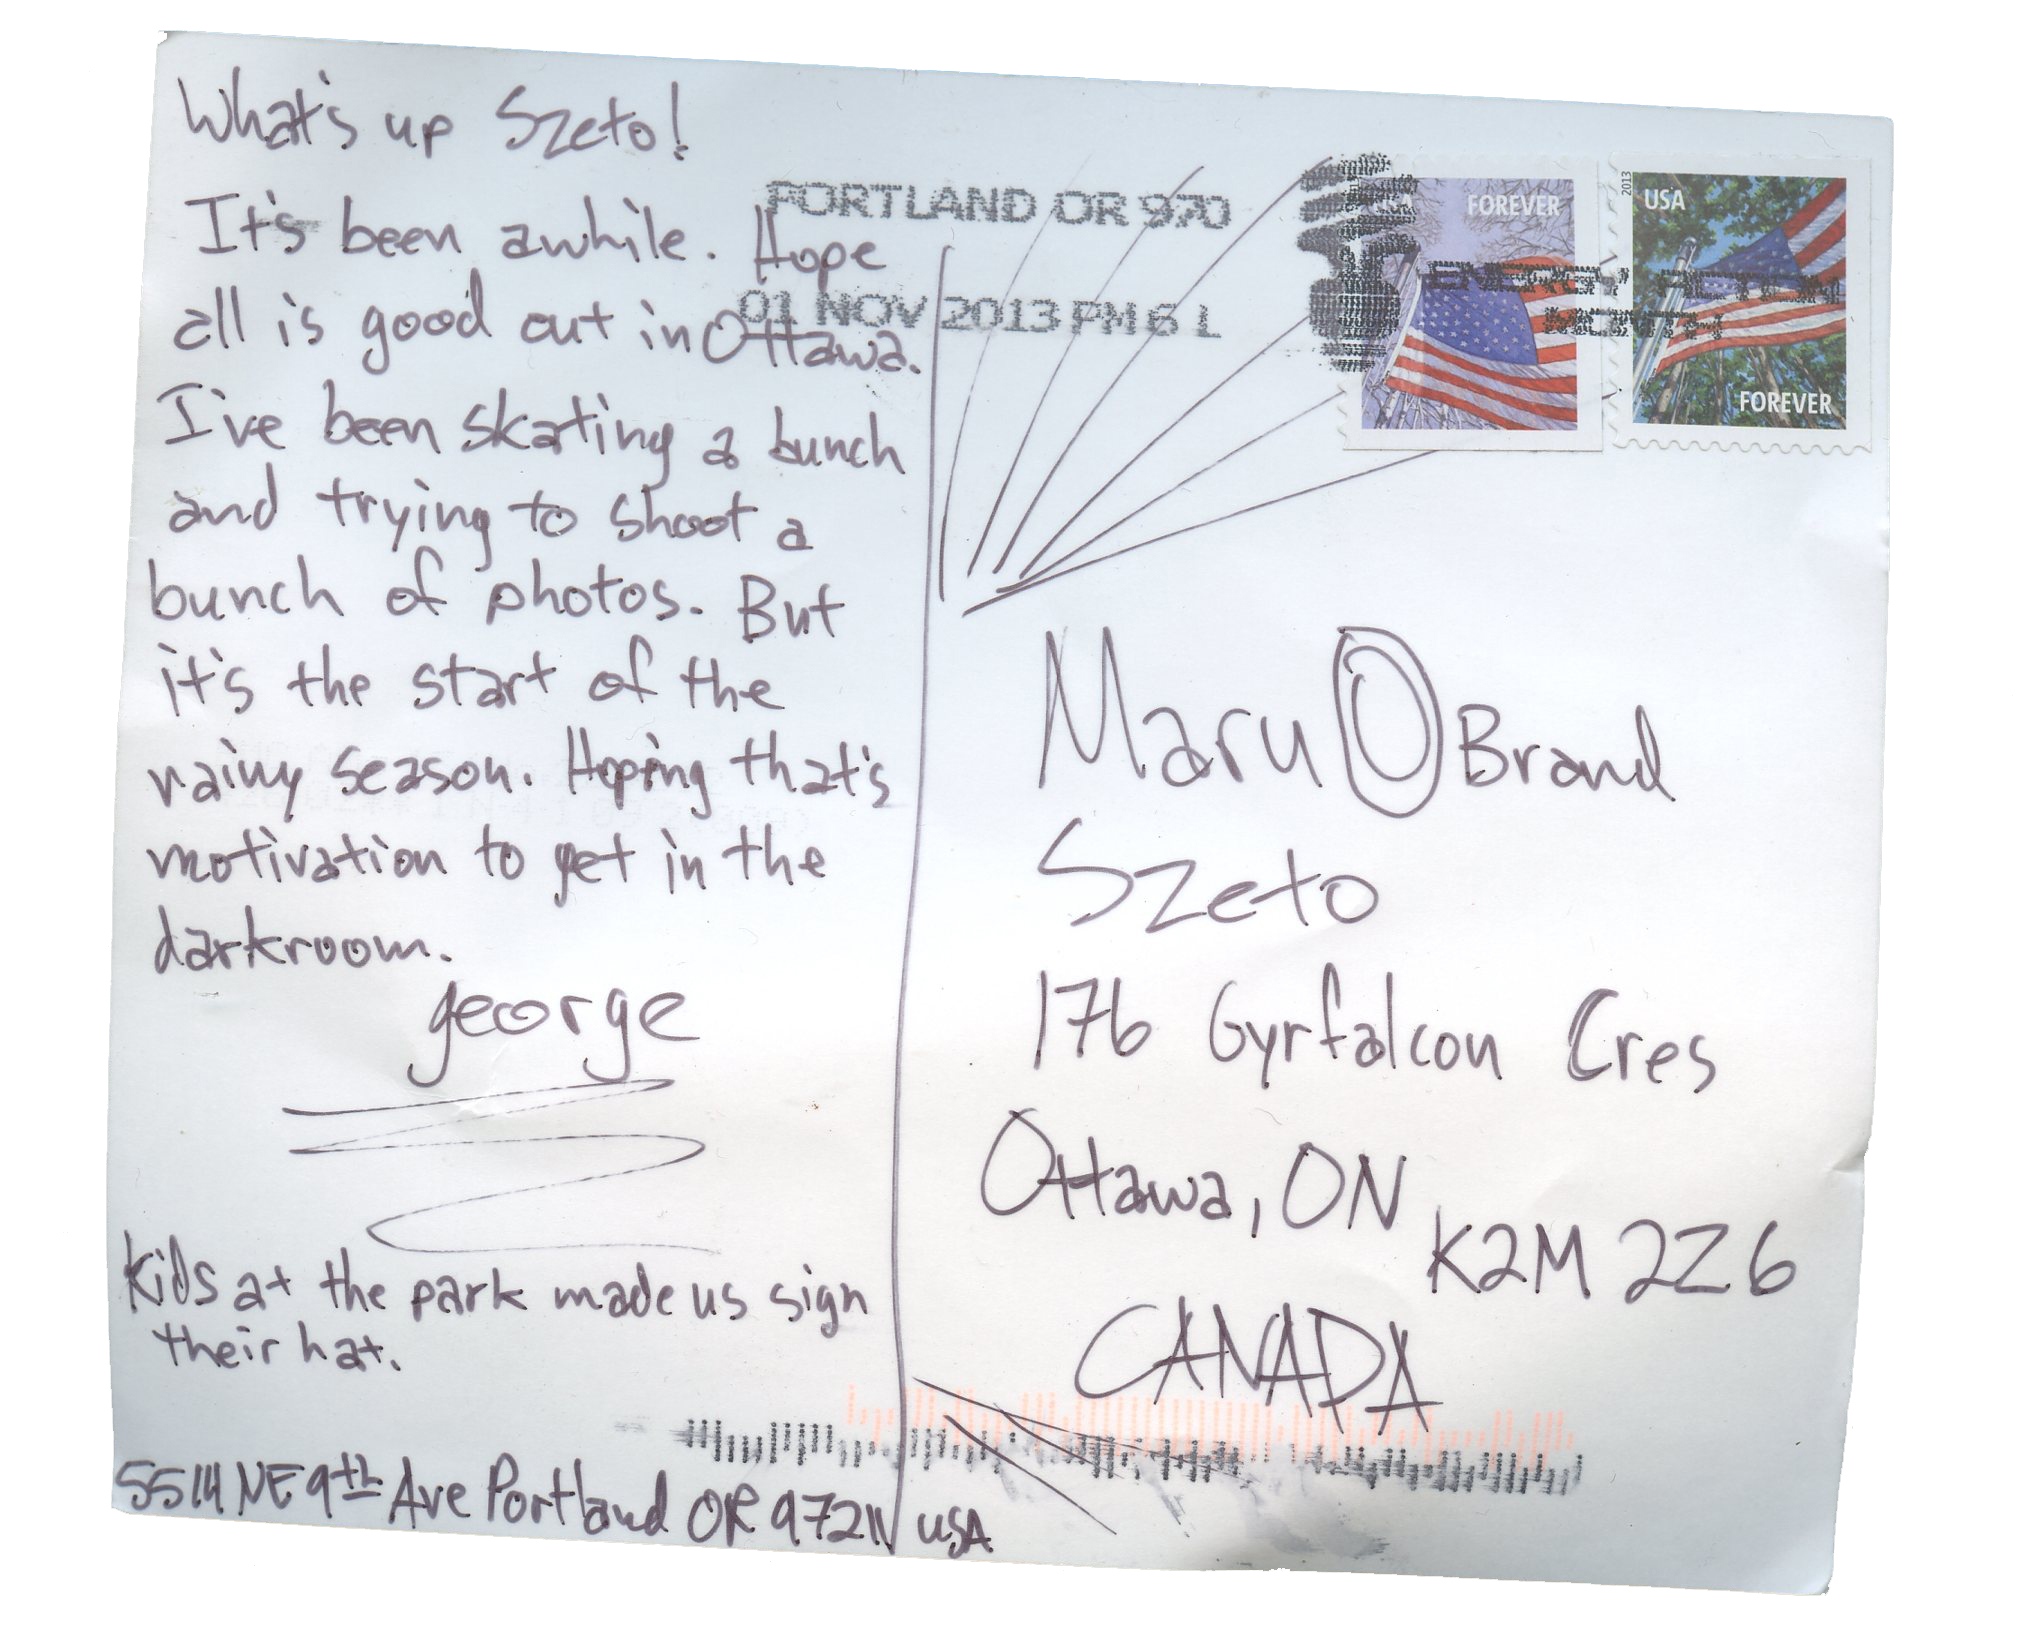 What's up Szeto!
It's been awhile. Hope
all is good out in Ottawa.
I've been skating a bunch
and trying to shoot a
bunch of photos. But
it's the start of the
rainy season. Hoping that's
motivation to get in the
darkroom.
george
Kids at the park made us sign
their hat.
5514 NE 9th Ave Portland OR 97211 USA
PORTLAND OR 970
01 NOV 2013 PM 6 L
FOREVER
2013
USA
FOREVER
Maru O Brand
Szeto
176 Gyrfalcon Cres
Ottawa, ON
K2M 2Z6
CANADA